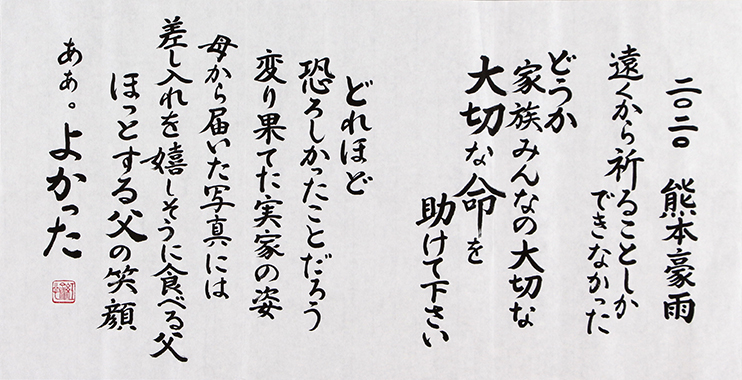 二〇二〇 熊本豪雨
遠くから祈ることしか
できなかった
どうか
家族みんなの大切な
大切な命を
助けて下さい
どれほど
恐ろしかったことだろう
変り果てた実家の姿
母から届いた写真には
差し入れを嬉しそうに食べる父
ほっとする父の笑顔
あぁ。よかった